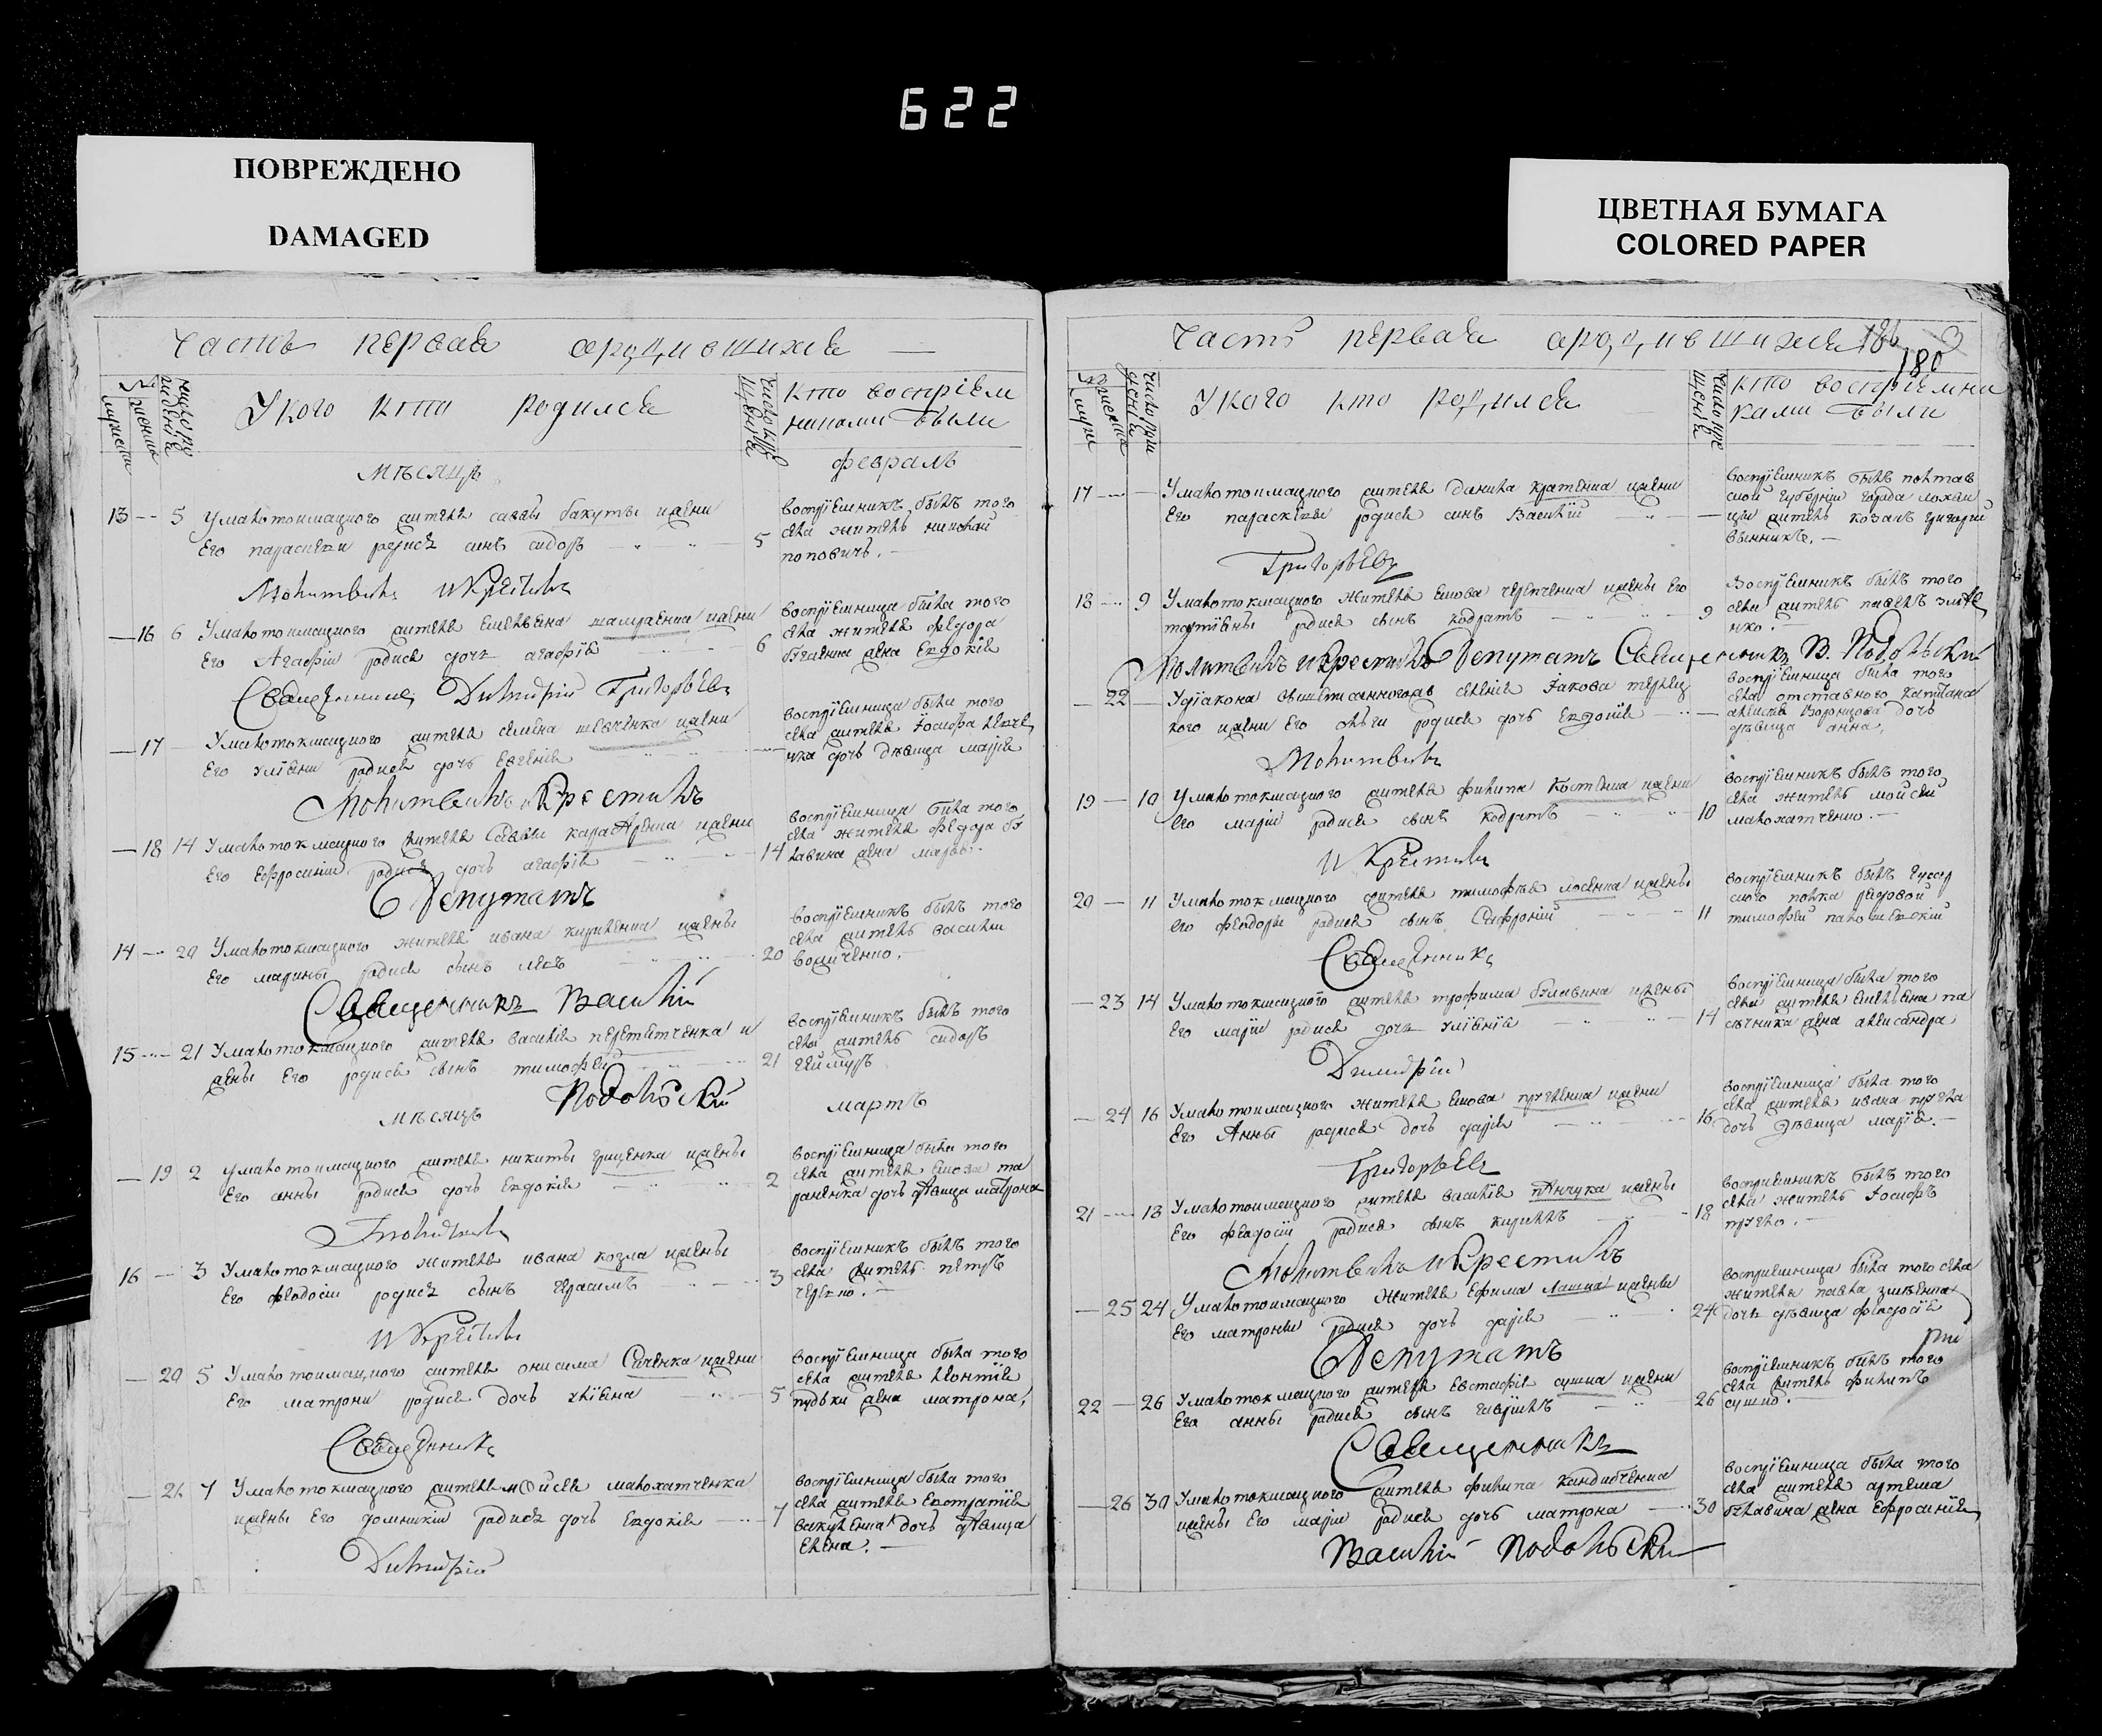 622
ПОВРЕЖДЕНО
DAMAGED
ЦВЕТНАЯ БУМАГА
COLORED PAPER
часть первая ородившихся
У кого кто родился
кто воспріем
никами были
мѣсяцъ
февраль
13 5 Умалотокмацкого жителя саввы бакуты ижены
его параскеви родися синъ сидоръ
5
воспріемникъ былъ того
села житель николай
поповичь.
Молитвилъ и Крестилъ
16 6 Умалотокмацкого жителя емеляена шапраенка ижени
его Агафіи родися дочъ агафія
6
воспріемница била того
села жителя федора
жена Евдокія
Священникъ Димитрій Григорьевъ
17 Умалотокмацкого жителя семена шевченка ижени
его уліяни родися дочь Евгенія
воспріемница была того
села жителя Іосифа
дочь дѣвица марія
Молитвилъ и Крестилъ
18 14 Умалотокмацкого жителя Саввы ижени
его Ефросиніи родися дочь агафія
14
воспріемница била того
села жителя федора бу
лавина жена
Депутатъ
14 20 Умалотокмацкого жителя ивана кириленка ижены
его марины родися сынъ
20
воспріемникъ былъ того
села житель василій
Священникъ Василій
15 21 Умалотокмацкого жителя василія перетятченка и
жены его родися сынъ тимофей
21
воспріемникъ былъ того
села житель сидоръ
геймуръ
Подольскій
мѣсяцъ
мартъ
19 2 умалотокмацкого жителя никиты гриценка ижены
его анны родися дочь Евдокія
2
воспріемница была того
села жителя якова та
раненка дочь дѣвица матрона
16 3 Умалотокмацкого жителя ивана козла ижены
его феодосіи родися сынъ герасимъ
3
воспріемникъ былъ того
села житель петръ
И Крестилъ
20 5 Умалотокмацкого жителя онисима ижени
его матрони родися дочь уліяна
5
воспріемница была того
села жителя леонтія
жена матрона,
Священникъ
21 7 Умалотокмацкого жителя моисея малохатченка
ижены его домникіи родися дочь Евдокія
7
воспріемница была того
села жителя Евстратія
вакуленка дочь дѣвица
Елена.
Димитрій
часть первая ородившихся
186
180
У кого кто родился
кто воспріемни
ками были
17 Умалотокмацкого жителя данила кратенка ижени
его параскевы родися синъ Василій
воспріемникъ былъ полтав
ской губерніи города
житель козакъ григорій
винникъ.
Григорьевъ
18 9 Умалотокмацкого жителя якова ижены его
родися сынъ кодратъ
9
воспріемникъ былъ того
села житель павелъ змѣе
нко.
Молитвилъ и Крестилъ Депутатъ Священникъ В. Подольскій
22 Удіакона селенія Іакова
кого ижени его родися дочь Евдокія
воспріемница была того
села отставного капитана
алексѣя Воронцова дочь
дѣвица анна,
Молитвилъ
19 10 Умалотокмацкого жителя филипа Костенка ижени
его маріи родися сынъ кодратъ
10
воспріемникъ былъ того
села житель мойсей
малохатченко.
И Крестилъ
20 11 Умалотокмацкого жителя тимофѣя лосенка ижены
его феодоры родися сынъ Сафроній
11
воспріемникъ былъ гусар
ского полка рядовой
тимофей
Священникъ
23 14 Умалотокмацкого жителя трофима булавина ижены
его маріи родися дочь уліянія
14
воспріемница была того
села жителя емеляена па
сѣчника жена александра
Димитрій
24 16 Умалотокмацкого жителя якова ижени
его Анны родися дочь дарія
16
воспріемница была того
села жителя ивана
дочь дѣвица марія.
Григорьевъ
21 18 Умалотокмацкого жителя василія ижены
его феодосіи родися сынъ кирилъ
18
воспріемникъ былъ того
села житель Іосифъ
Молитвилъ и Крестилъ
25 24 Умалотокмацкого жителя Ефима ижены
его матроны родися дочь дарія
24
воспріемница была того села
жителя павла змѣенка
дочь дѣвица феодосія
Депутатъ
22 26 Умалотокмацкого жителя Евстафія сушка ижени
его анны родися сынъ гавріилъ
26
воспріемникъ билъ того
села житель филипъ
сушко.
Священникъ
26 30 Умалотокмацкого жителя филипа Кандибченка
ижены его маріи родися дочь матрона
30
воспріемница была того
села жителя артема
булавина жена Ефросинія
Василій Подольскій